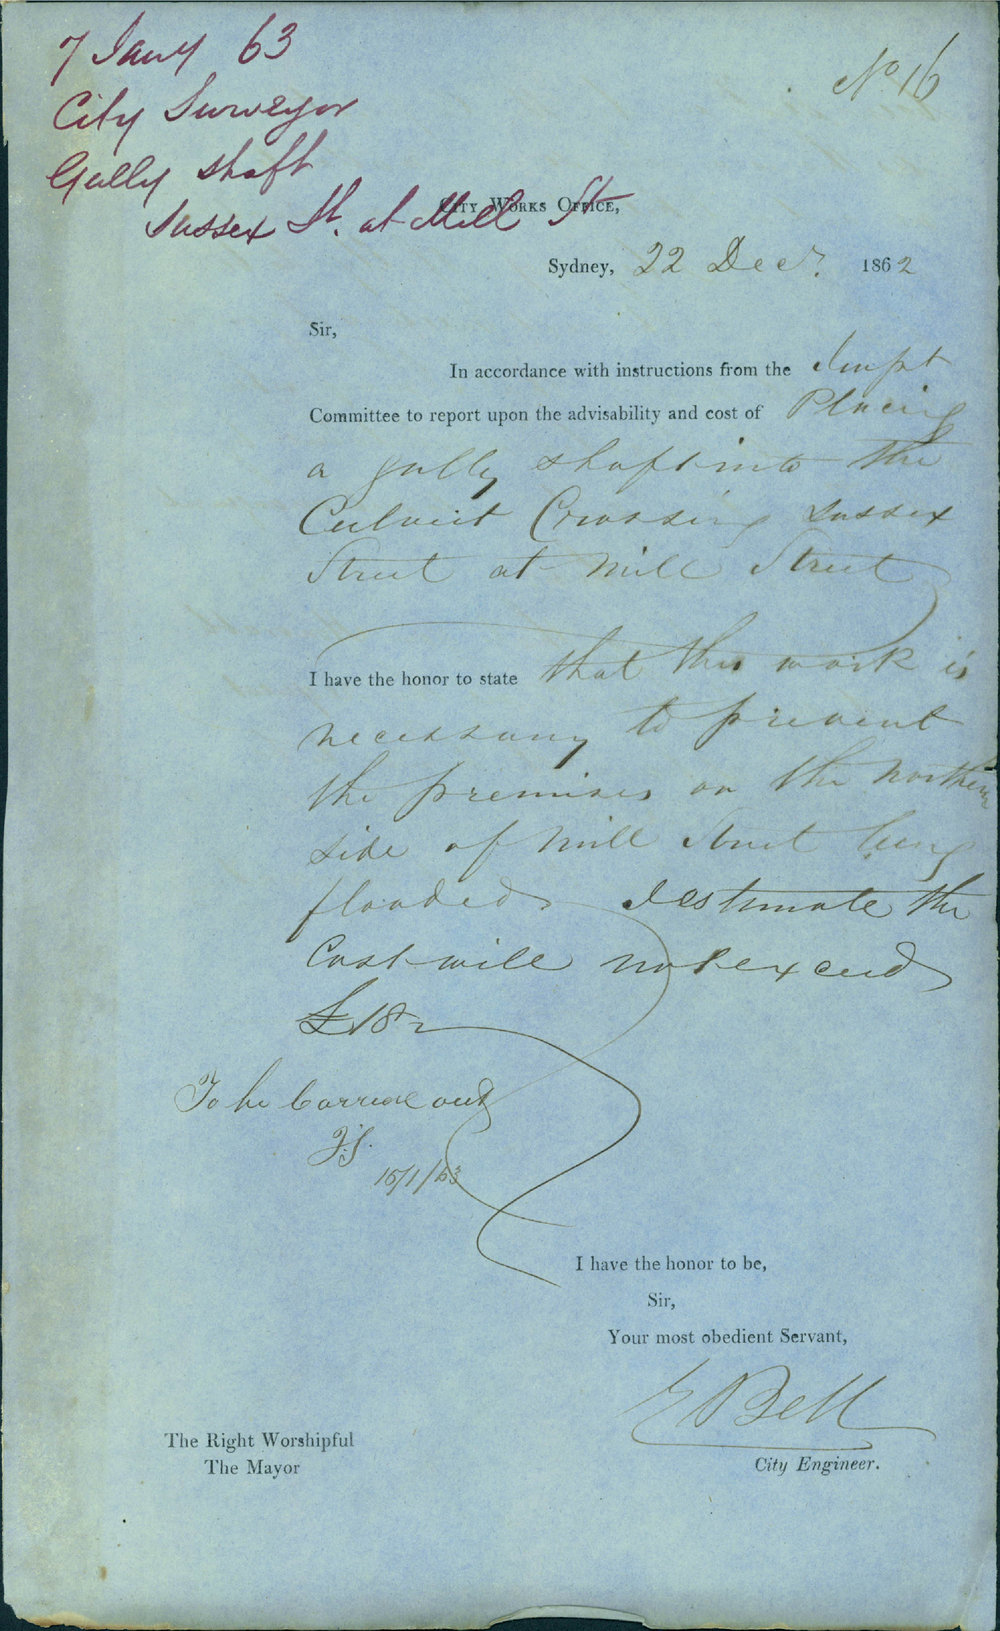 7 Jany 63
City Surveyor
Gully shaft
Sussex St. at Mill St
No 16
City Works Office,
Sydney, 22 Decr. 1862
Sir,
In accordance with instructions from the Impt
Committee to report upon the advisability and cost of Placing
a gully shaft into the
Culvert Crossing Sussex
Street at Mill Street
I have the honor to state that this work is
necessary to prevent
the premises on the Northern
side of Mill Street being
flooded I estimate the
Cost will not exceed
£18
To be Carried out
15/1/63
I have the honor to be,
Sir,
Your most obedient Servant,
E Bell
City Engineer.
The Right Worshipful
The Mayor